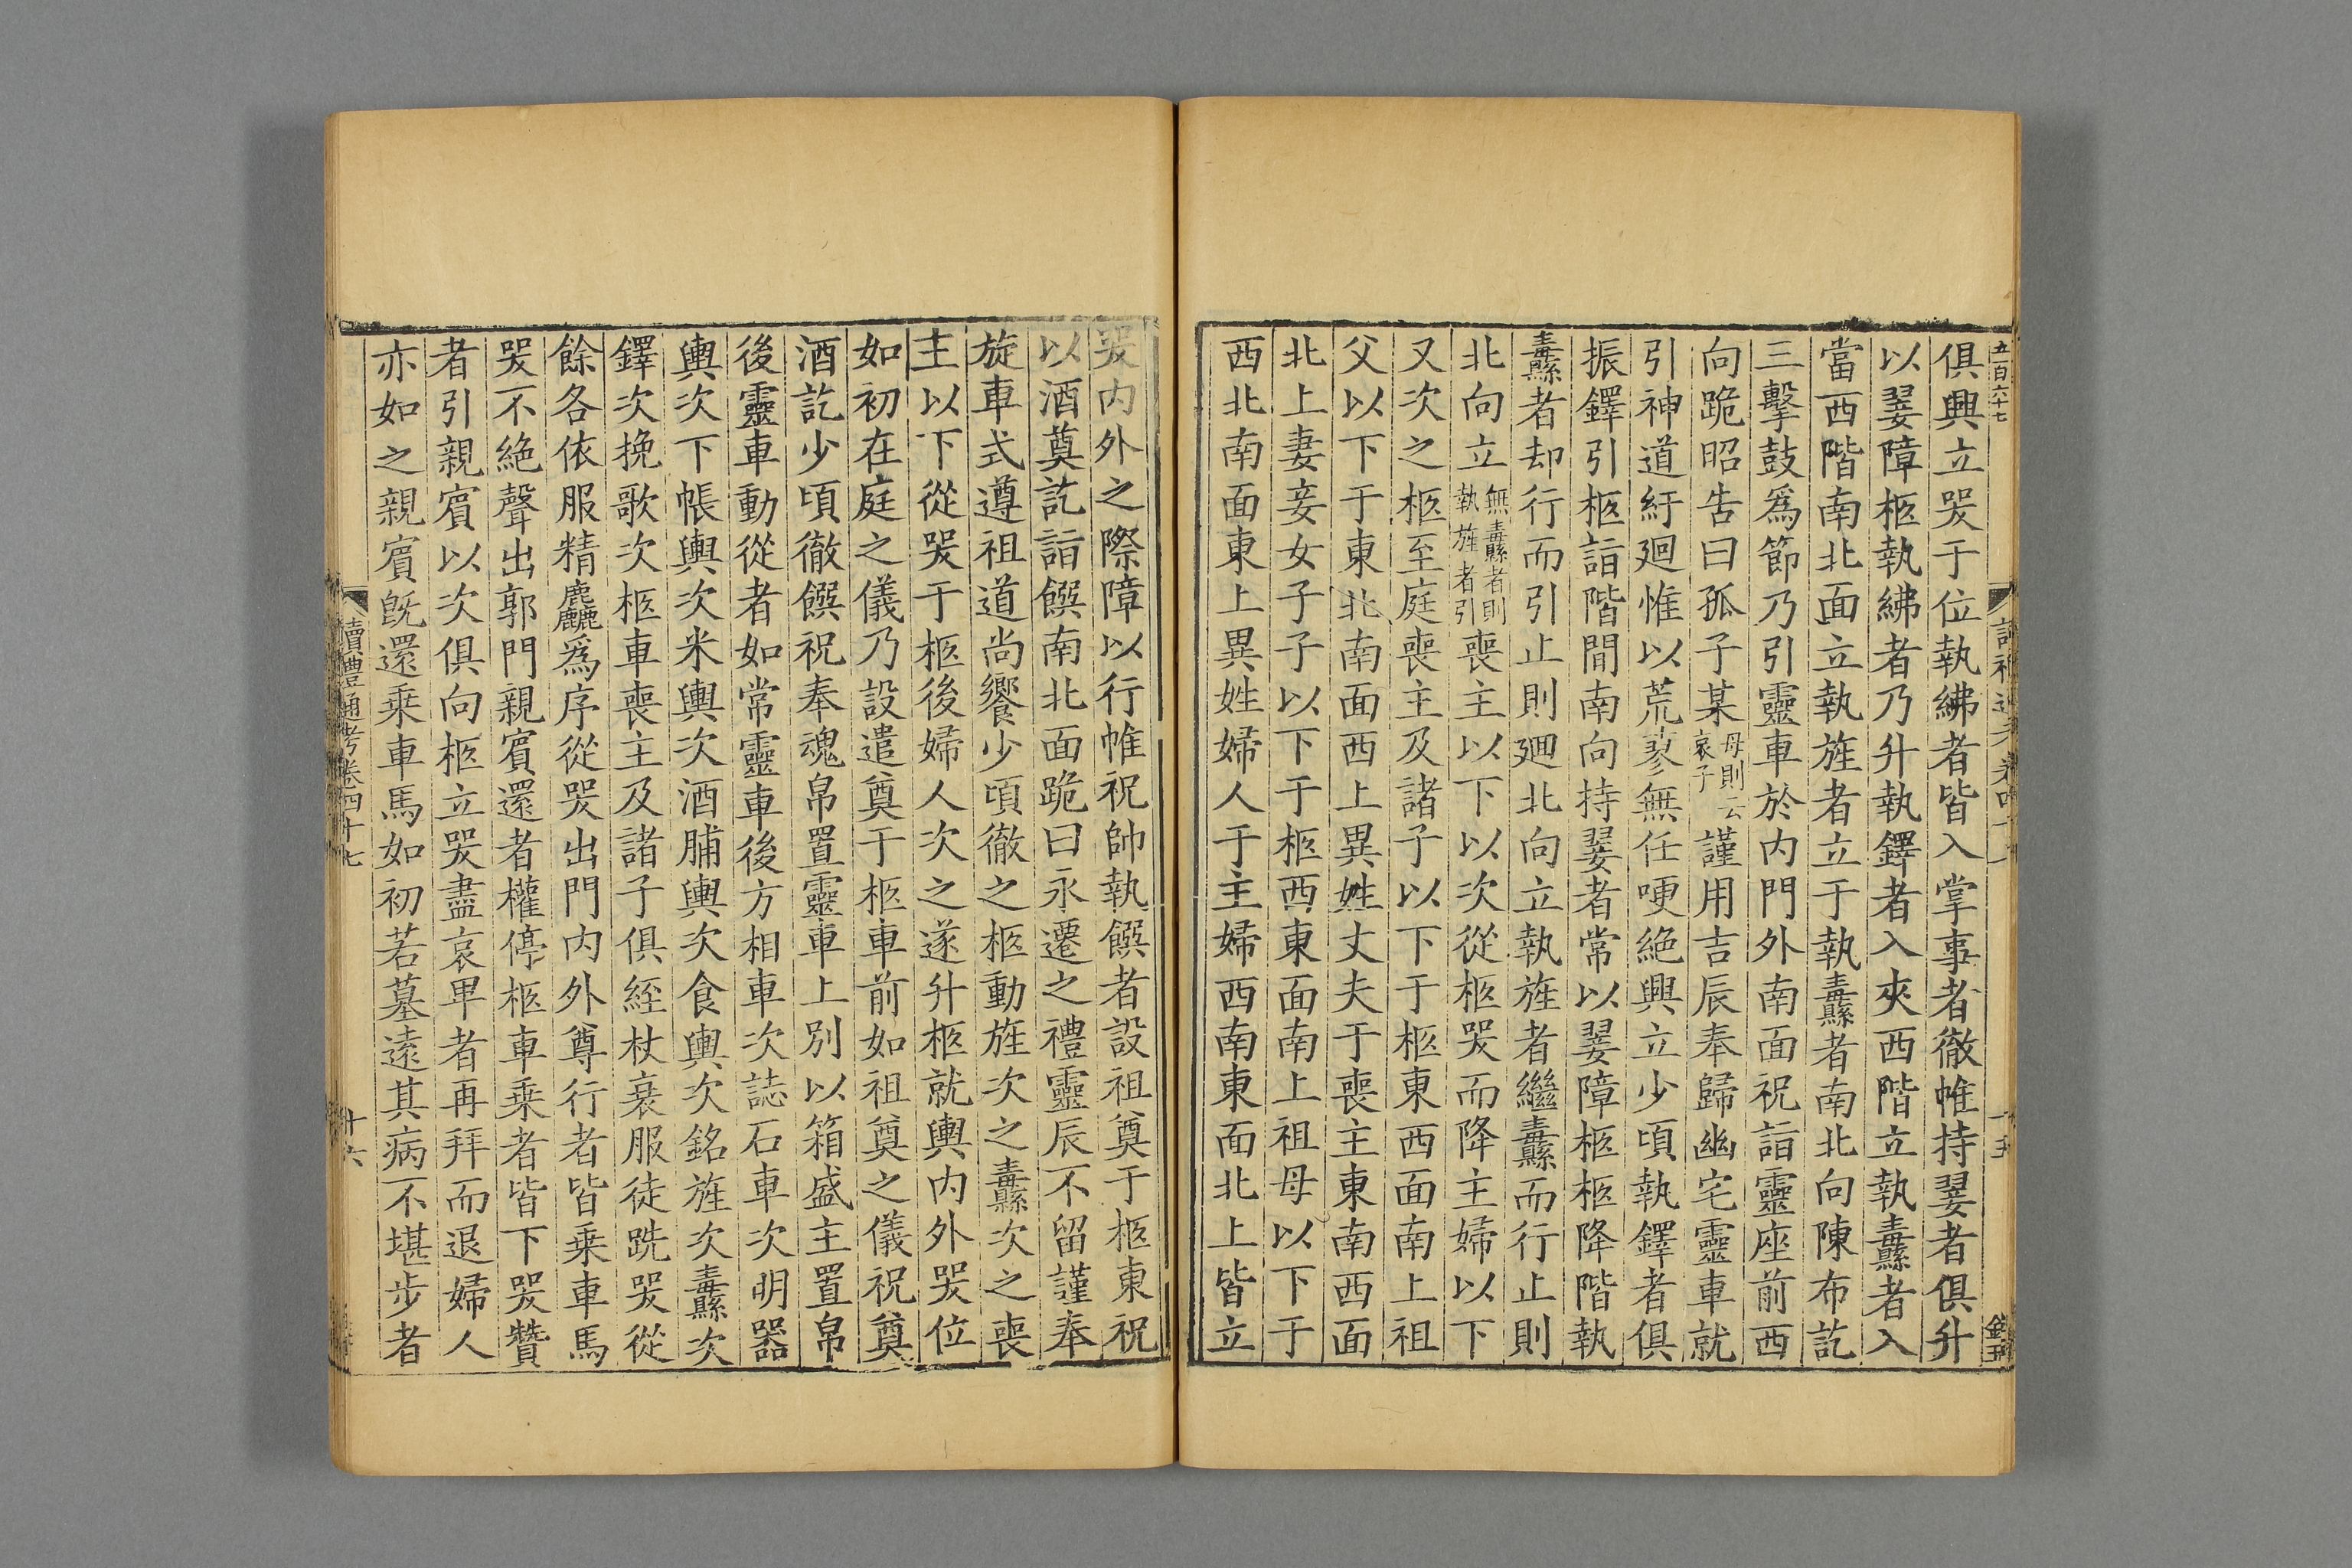 五百六十七
俱興立哭于位執紼者皆入掌事者徹帷持翣者俱升
以翣障柩執紼者乃升執鐸者入夾西階立執纛者入
當西階南北面立執旌者立于執纛者南北向陳布訖
三擊鼓爲節乃引靈車於内門外南面祝詣靈座前西
向跪昭告曰孤子某母則云哀子謹用吉辰奉歸幽宅靈車就
引神道紆廻惟以荒蓼無任哽絶興立少頃執鐸者俱
振鐸引柩詣階間南向持翣者常以翣障柩柩降階執
纛者却行而引止則廻北向立執旌者繼纛而行止則
北向立無纛者則執旌者引喪主以下以次從柩哭而降主婦以下
又次之柩至庭喪主及諸子以下于柩東西面南上祖
父以下于東北南面西上異姓丈夫于喪主東南西面
北上妻妾女子子以下于柩西東面南上祖母以下于
西北南面東上異姓婦人于主婦西南東面北上皆立
哭内外之際障以行帷祝帥執饌者設祖奠于柩東祝
以酒奠訖詣饌南北面跪曰永遷之禮靈辰不留謹奉
旋車式遵祖道尚饗少頃徹之柩動旌次之纛次之喪
主以下從哭于柩後婦人次之遂升柩就輿内外哭位
如初在庭之儀乃設遣奠于柩車前如祖奠之儀祝奠
酒訖少頃徹饌祝奉魂帛置靈車上別以箱盛主置帛
後靈車動從者如常靈車後方相車次誌石車次明器
輿次下帳輿次米輿次酒脯輿次食輿次銘旌次纛次
鐸次挽歌次柩車喪主及諸子俱絰杖衰服徒跣哭從
餘各依服精麤爲序從哭出門内外尊行者皆乗車馬
哭不絶聲出郭門親賓還者權停柩車乗者皆下哭贊
者引親賓以次俱向柩立哭盡哀畢者再拜而退婦人
亦如之親賓旣還乗車馬如初若墓遠其病不堪步者
讀禮通考卷四十七
十六